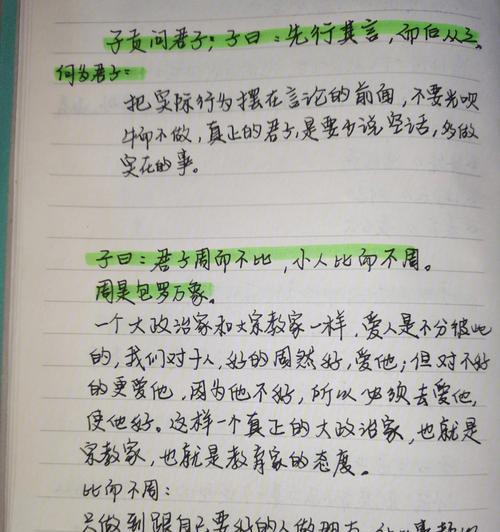 子贡问君子;子曰:先行其言,而后从之。
何为君子:
把实际行为摆在言论的前面,不要光吹
牛而不做,真正的君子,是要少说空话,多做
实在的事。
子曰:君子周而不比,小人比而不周。
周是包罗万象。
一个大政治家和大宗教家一样,爱人是不分彼此
的,我们对于人,好的固然好,爱他;但对不好
的更爱他,因为他不好,所以必须去爱他,
使他好。这样一个真正的大政治家,也就是
宗教家,也就是教育家的态度。
比而不周:
只做到跟自己要好的人做朋友